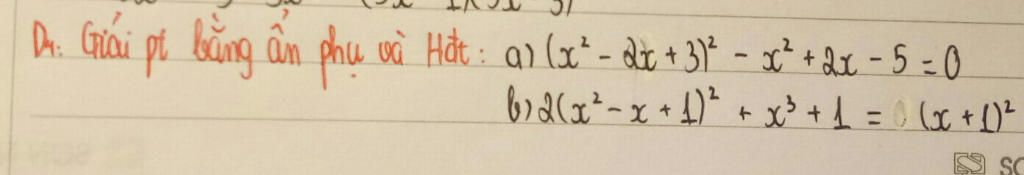 D4: Giải pt bằng ẩn phụ và Hđt: a) (x² - 2x + 3)² - x² + 2x - 5 = 0
b) 2(x² - x + 1)² + x³ + 1 = (x + 1)²